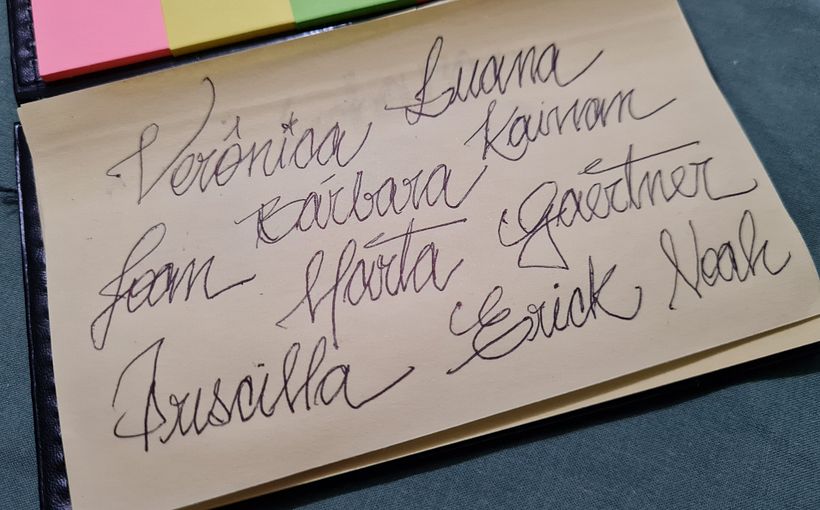 Verônica Luana
Bárbara Kainan
Joan Marta Gaertner
Priscilla Erick Noah